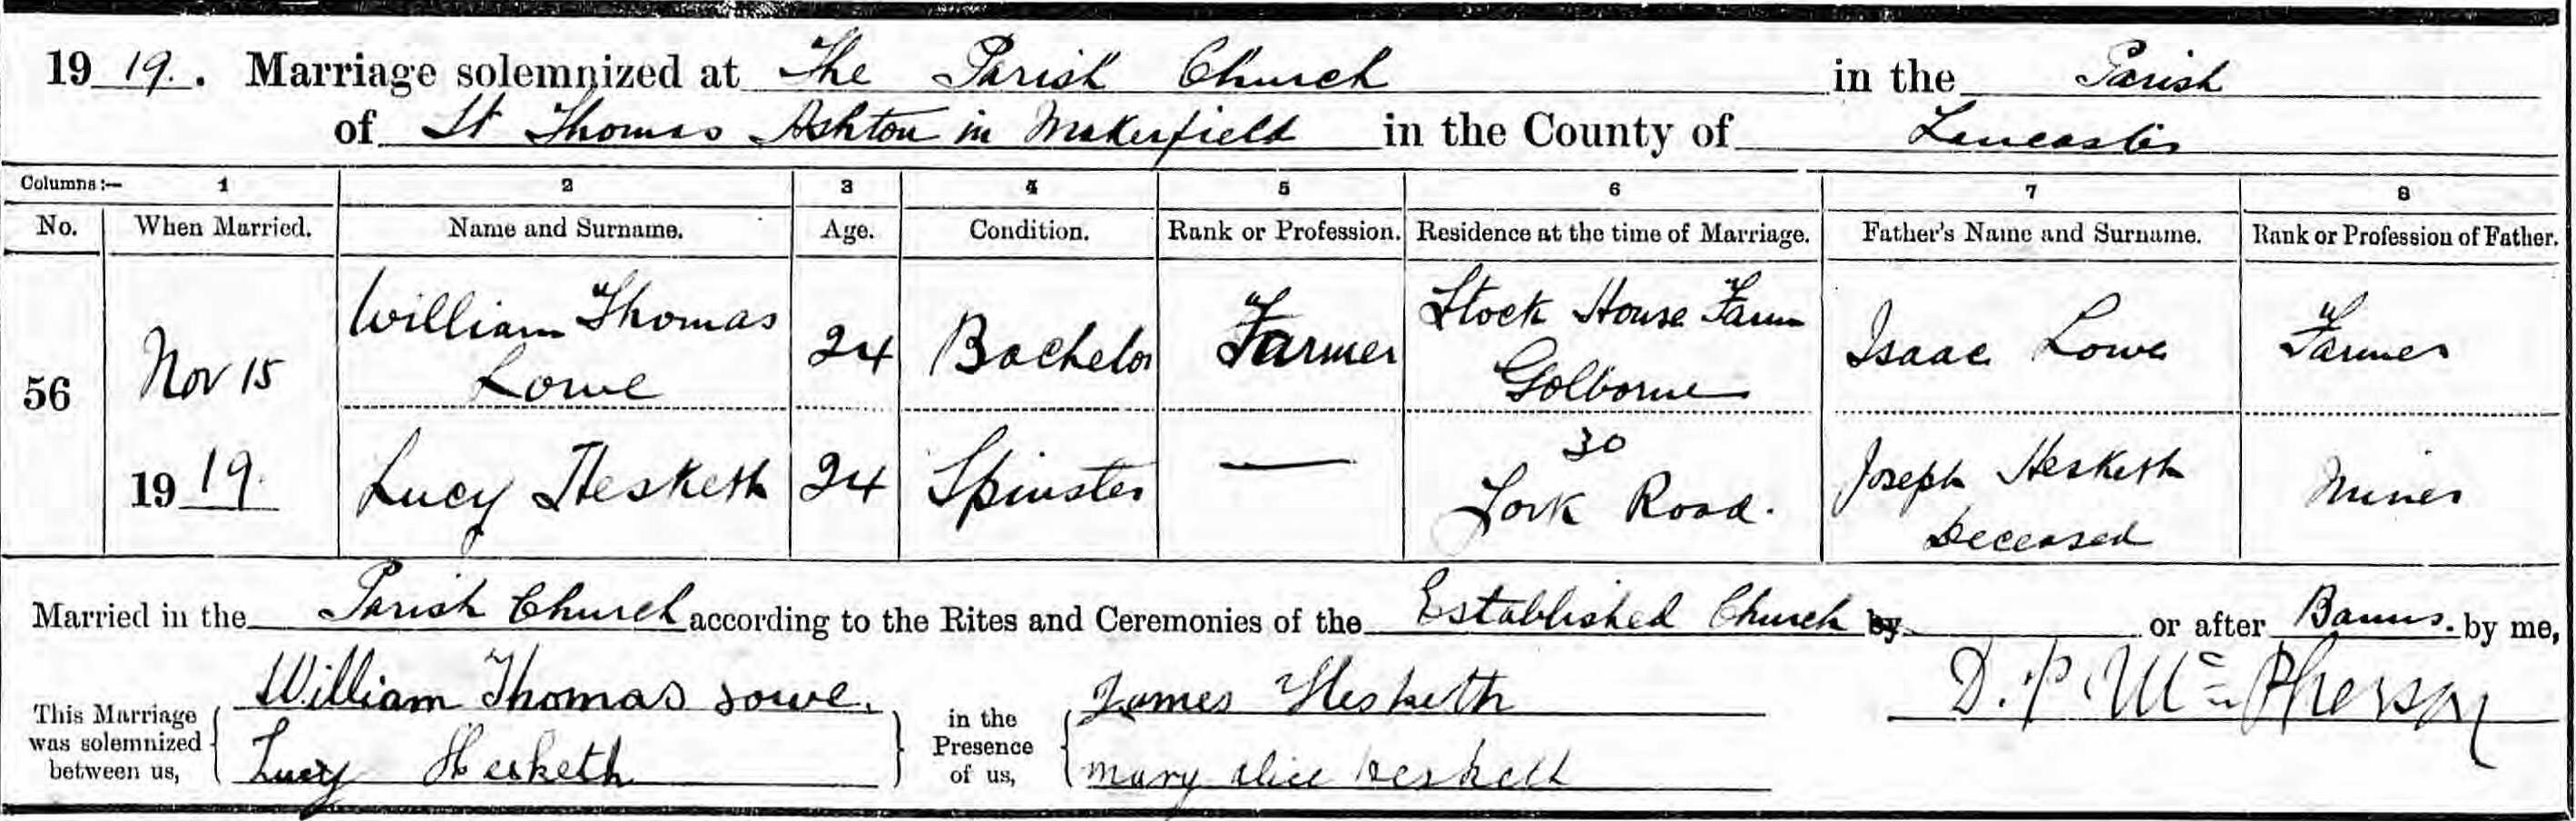 1919. Marriage solemnized at The Parish Church in the Parish
of St Thomas Ashton in Makerfield in the County of Lancaster
Columns:— 1 2 3 4 5 6 7 8
No. When Married. Name and Surname. Age. Condition. Rank or Profession. Residence at the time of Marriage. Father's Name and Surname. Rank or Profession of Father.
56 Nov 15 1919.
William Thomas Lowe 24 Bachelor Farmer Stock House Farm Golborne Isaac Lowe Farmer
Lucy Hesketh 24 Spinster — 30 York Road. Joseph Hesketh Deceased Miner
Married in the Parish Church according to the Rites and Ceremonies of the Established Church by or after Banns. by me,
This Marriage was solemnized between us, William Thomas Lowe. Lucy Hesketh in the Presence of us, James Hesketh Mary Alice Hesketh D. P. McPherson